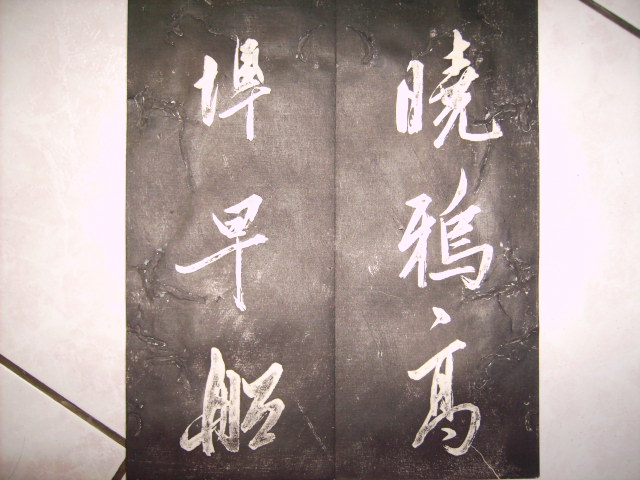 曉鴉高
埠早船